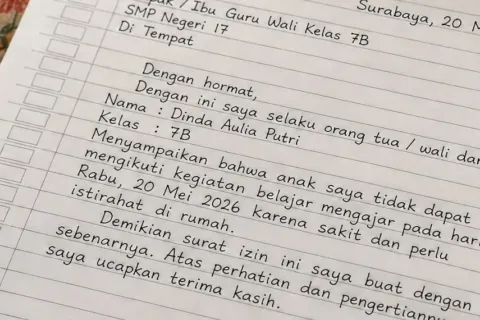 Surabaya, 20 M
/ Ibu Guru Wali Kelas 7B
SMP Negeri 17
Di Tempat
Dengan hormat,
Dengan ini saya selaku orang tua / wali dar
Nama : Dinda Aulia Putri
Kelas : 7B
Menyampaikan bahwa anak saya tidak dapat
mengikuti kegiatan belajar mengajar pada har
Rabu, 20 Mei 2026 karena sakit dan perlu
istirahat di rumah.
Demikian surat izin ini saya buat dengan
sebenarnya. Atas perhatian dan pengertiann
saya ucapkan terima kasih.